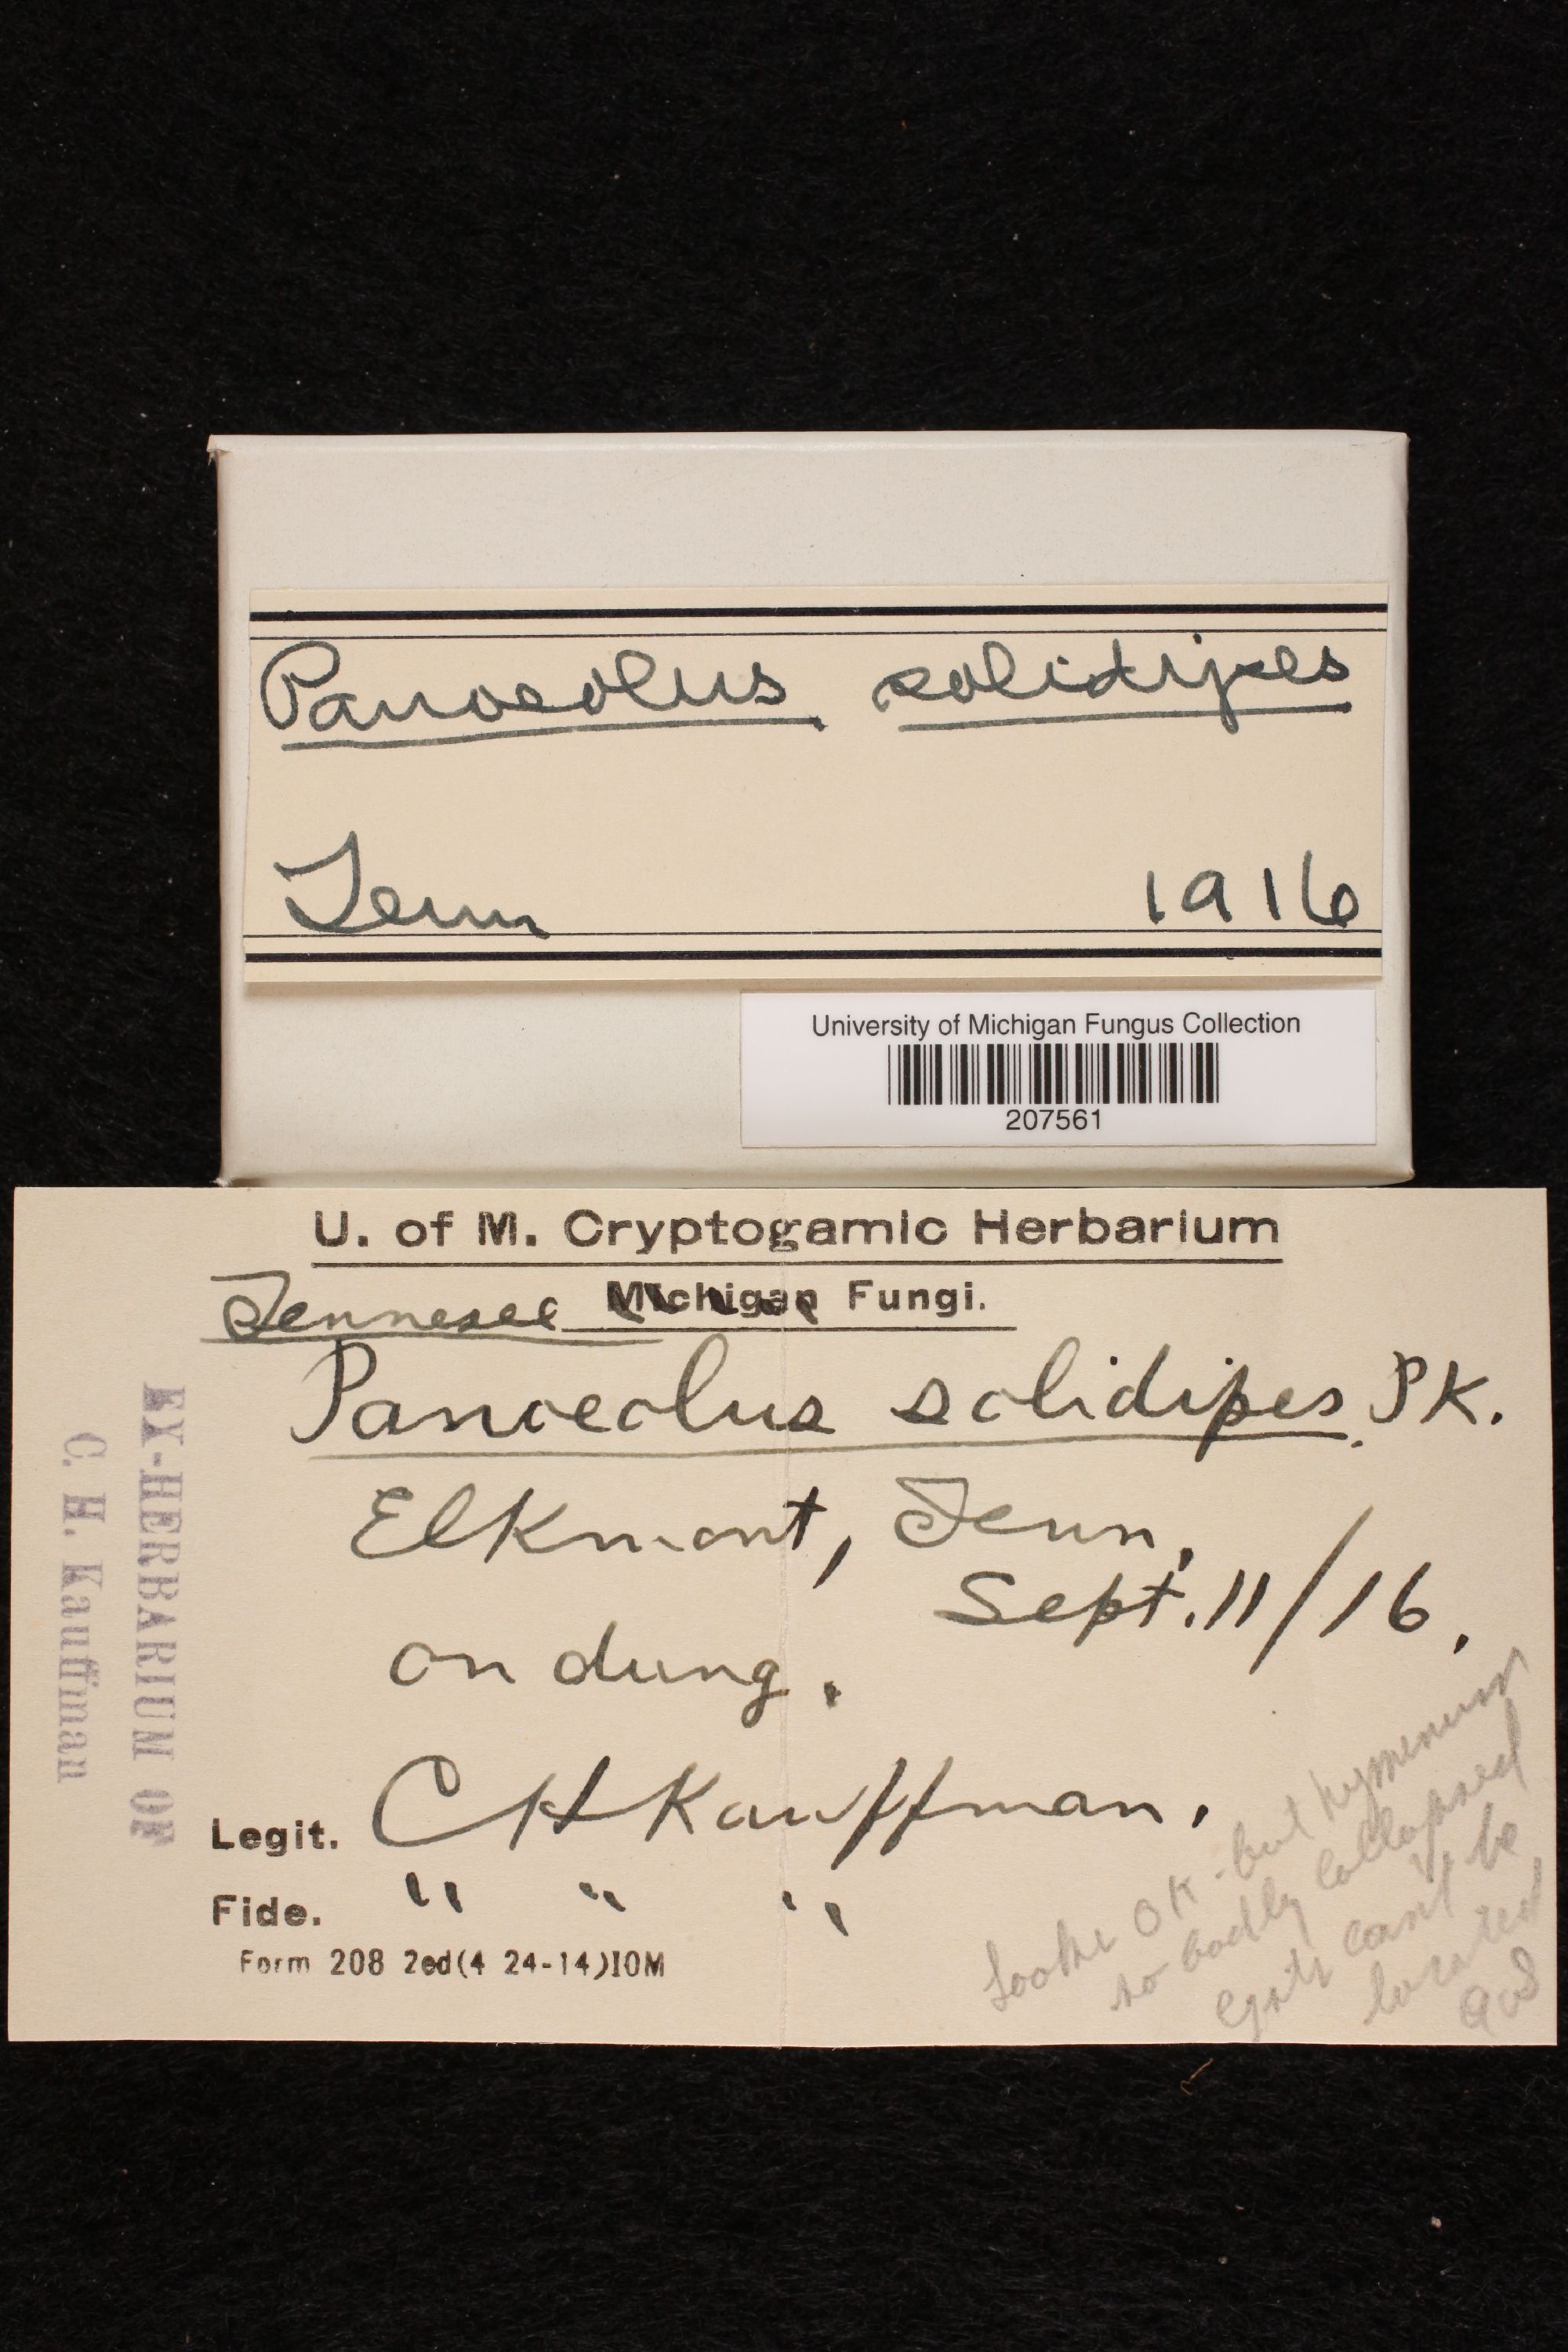 Panoeolus solidipes
Tenn 1916
University of Michigan Fungus Collection
207561
U. of M. Cryptogamic Herbarium
Tennesee Michigan Fungi.
Panoeolus solidipes PK.
Elkmont, Tenn.
Sept. 11/16.
on dung.
Legit. CH Kauffman.
Fide. " " "
Form 208 2ed(4 24-14)IOM
EX-HERBARIUM OF
C. H. Kauffman
Looks OK - but hymenium
so badly collapsed
cysts can't be
located